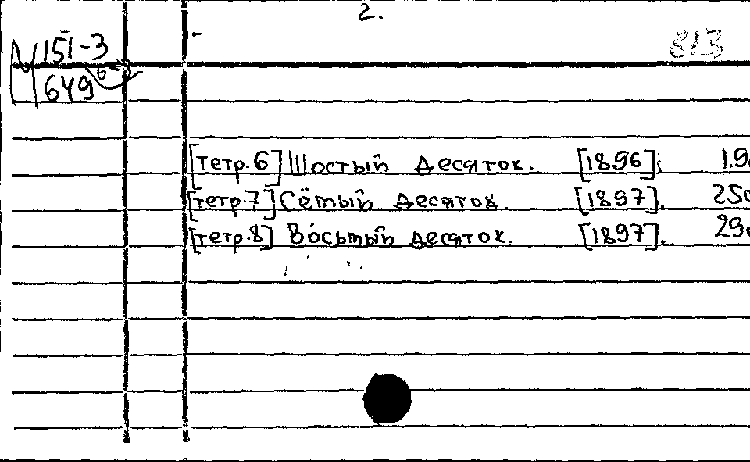 2.
151-3
813
649
[тетр. 6] Шостый десяток. [1896].
[тетр. 7] Сёмый десяток. [1897]. 25
[тетр. 8] Восьмый десяток. [1897]. 29